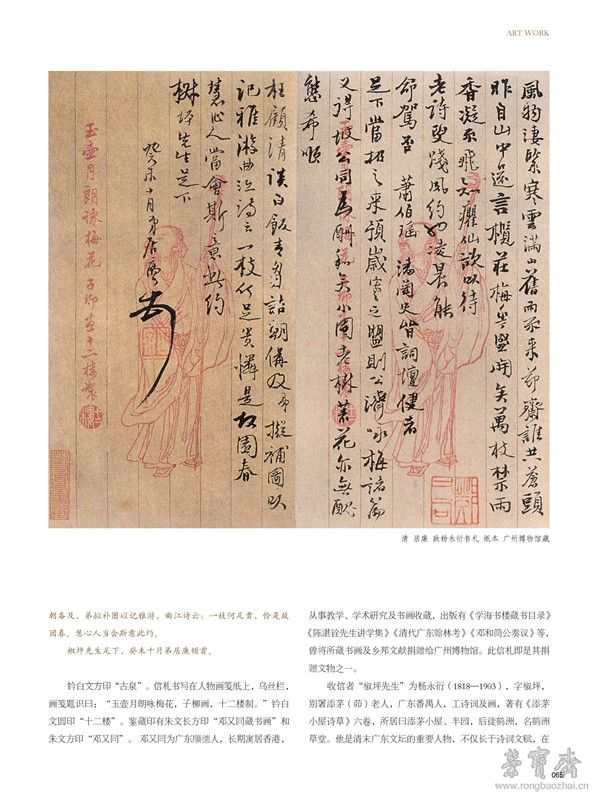 ART WORK
風物淒緊寒雲滿山舊雨不來茅齋誰共蒼頭
昨自山中還言欖莊梅岑盛開矣萬枝禁雨
香凝飛知癯仙欲以待
老詩叟踐風約凌晨能
命駕否 蕭伯瑤潘蘭史皆詞壇健者
足下當招之來預歲寒之盟則公濟咏梅諸篇
又得坡公同爲酬和矣小園老樹著花亦無醜
態希順
枉顧清談白飯青芻詣朝備及弟擬補圖以
記雅游曲江詩云一枝何足貴憐是故園春
慧心人當會斯意此約
椒坪先生足下
癸未十月弟居廉頓首
玉壺月朗詠梅花 子柳画十二樓製
清 居廉 致杨永衍书札 纸本 广州博物馆藏
朝备及，弟拟补图以记雅游，曲江诗云：一枝何足贵，怜是故
园春。慧心人当会斯意此约。
椒坪先生足下，癸未十月弟居廉顿首。
钤白文方印“古泉”。信札书写在人物画笺纸上，乌丝栏，
画笺题识曰：“玉壶月朗咏梅花，子柳画，十二楼制。”钤白
文圆印“十二楼”。鉴藏印有朱文长方印“邓又同藏书画”和
朱文方印“邓又同”。邓又同为广东顺德人，长期寓居香港，
从事教学、学术研究及书画收藏，出版有《学海书楼藏书目录》
《陈湛铨先生讲学集》《清代广东翰林考》《邓和简公奏议》等，
曾将所藏书画及乡邦文献捐赠给广州博物馆。此信札即是其捐
赠文物之一。
收信者“椒坪先生”为杨永衍（1818—1903），字椒坪，
别署添茅（茆）老人，广东番禺人，工诗词及画，著有《添茅
小屋诗草》六卷，所居曰添茅小屋、半园，后徙鹤洲，名鹤洲
草堂。他是清末广东文坛的重要人物，不仅长于诗词文赋，在
065
荣宝斋
www.rongbaozhai.cn